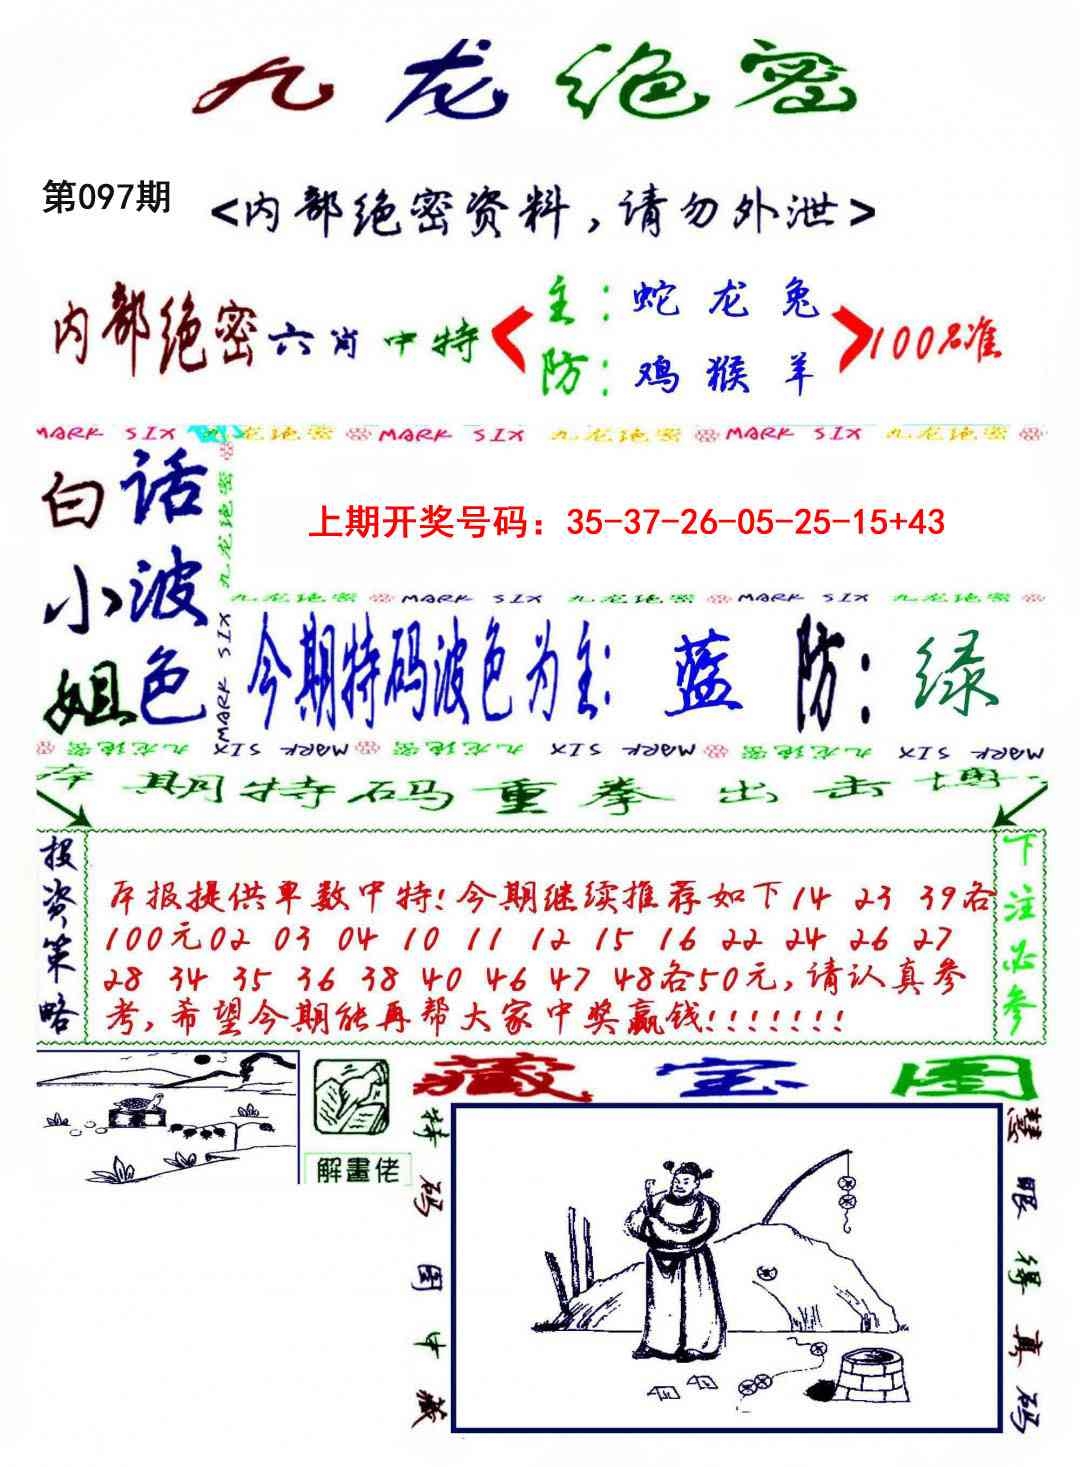 九龙绝密
第097期
<内部绝密资料,请勿外泄>
内部绝密六肖中特
主:蛇 龙 兔
防:鸡 猴 羊
100%准
MARK SIX 九龙绝密 MARK SIX 九龙绝密 MARK SIX 九龙绝密
九龙绝密
MARK SIX
白小姐
话波色
上期开奖号码：35-37-26-05-25-15+43
九龙绝密 MARK SIX 九龙绝密 MARK SIX 九龙绝密
今期特码波色为主: 蓝 防: 绿
九龙绝密 MARK SIX 九龙绝密 MARK SIX 九龙绝密 MARK SIX
本期特码重拳出击博
投资策略
本报提供单数中特!今期继续推荐如下14 23 39各
100元02 03 04 10 11 12 15 16 22 24 26 27
28 34 35 36 38 40 46 47 48各50元,请认真参
考,希望今期能再帮大家中奖赢钱!!!!!!!
下注必参
解畫佬
藏宝图
特码图中藏
慧眼得真码